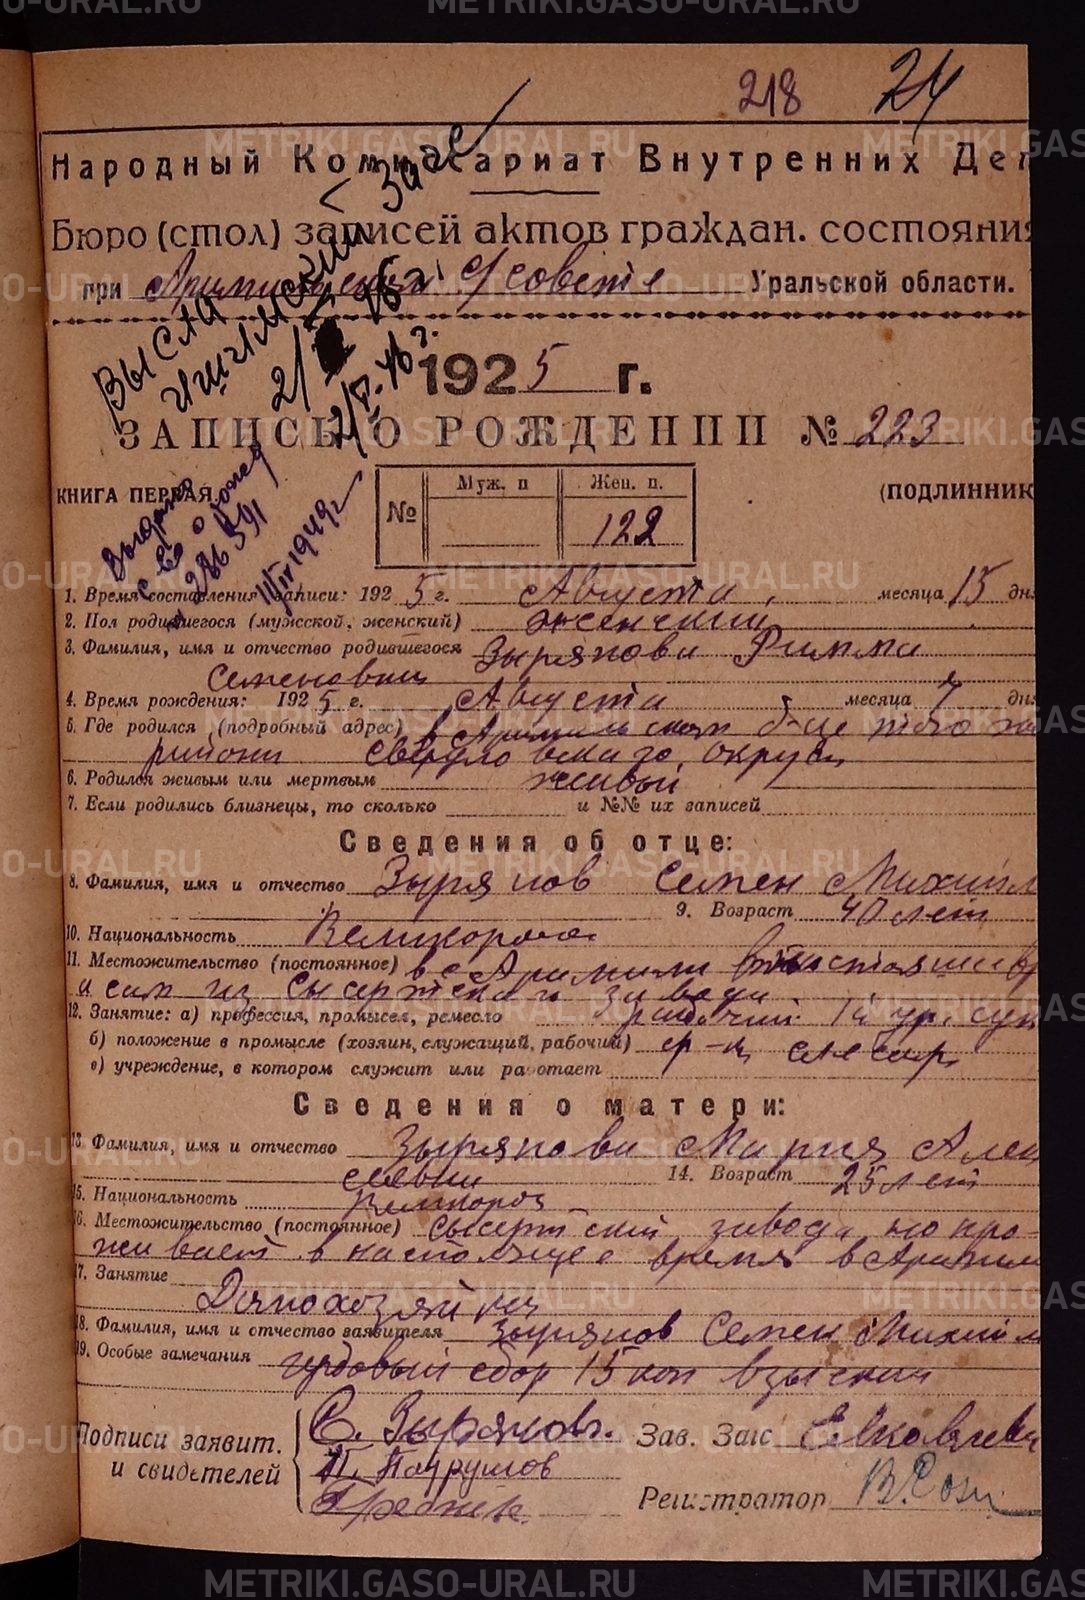 METRIKI.GASO-URAL.RU METRIKI.GASO-URAL.RU
218 24
Народный Комиссариат Внутренних Дел
Бюро (стол) записей актов граждан. состояния
при Арамильском Уральской области.
Высла
Ишимский Загс
2/V-46 г.
1925 г.
ЗАПИСЬ О РОЖДЕНИИ № 223
КНИГА ПЕРВАЯ (ПОДЛИННИК
№ Муж. п Жен. п.
122
Выдано
с-во о рожд
286591
1949 г
1. Время составления записи: 1925 г. Августа месяца 15 дня
2. Пол родившегося (мужской, женский) женский
3. Фамилия, имя и отчество родившегося Зырянова Римма
Семеновна
4. Время рождения: 1925 г. Августа месяца 7 дня
5. Где родился (подробный адрес) в Арамильской б-це того же
района Свердловского округа
6. Родился живым или мертвым живой
7. Если родились близнецы, то сколько и №№ их записей
Сведения об отце:
8. Фамилия, имя и отчество Зырянов Семен Михайл
9. Возраст 40 лет
10. Национальность Великоросс
11. Местожительство (постоянное) в с Арамили в настоящ вр
а сам из Сысертского завода
12. Занятие: а) профессия, промысел, ремесло рабочий
б) положение в промысле (хозяин, служащий, рабочий) слесарь
в) учреждение, в котором служит или работает
Сведения о матери:
13. Фамилия, имя и отчество Зырянова Мария Алек
сеевна 14. Возраст 25 лет
15. Национальность Великоросс
16. Местожительство (постоянное) Сысертский завода но про-
живает в настоящее время в Арамил
17. Занятие
Домохозяйка
18. Фамилия, имя и отчество заявителя Зырянов Семен Михайл
19. Особые замечания гербовый сбор 15 коп взыскан
Подписи заявит. и свидетелей
С. Зырянов.
П. Патрушов
Зав. Загс
Регистратор
METRIKI.GASO-URAL.RU METRIKI.GASO-URAL.RU